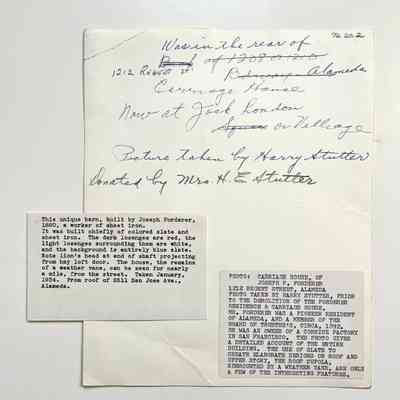 Was in the rear of
of 1208 or 1210
1212 Regent st Alameda
Carriage House
Now at Jack London
Square or Village
Picture taken by Harry Stutter
Donated by Mrs. H. E Stutter
This unique barn, built by Joseph Forderer,
1880, a worker of sheet iron.
It was built chiefly of colored slate and
sheet iron. The dark lozenges are red, the
light lozenges surrounding them are white,
and the background is entirely blue slate.
Note lion's head at end of shaft projecting
from hay loft door. The house, the remains
of a weather vane, can be seen for nearly
a mile, from the street. Taken January,
1954. From roof of 2511 San Jose Ave.,
Alameda.
PHOTO: CARRIAGE HOUSE, OF
JOSEPH F. FORDERER
1212 REGENT STREET, ALAMEDA
PHOTO TAKEN BY HARRY STUTTER, PRIOR
TO THE DEMOLITION OF THE FORDERER
RESIDENCE & CARRIAGE HOUSE.
MR. FORDERER WAS A PIONEER RESIDENT
OF ALAMEDA, AND A MEMBER OF THE
BOARD OF TRUSTEE'S, CIRCA, 1892.
HE WAS AN OWNER OF A CORNICE FACTORY
IN SAN FRANCISCO. THE PHOTO GIVES
A DETAILED ACCOUNT OF THE ENTIRE
BUILDING. THE USE OF SLATE TO
CREATE ELABORATE DESIGNS ON ROOF AND
UPPER STORY, THE ROOF CUPOLA,
SURMOUNTED BY A WEATHER VANE, ARE ONLY
A FEW OF THE INTERESTING FEATURES.